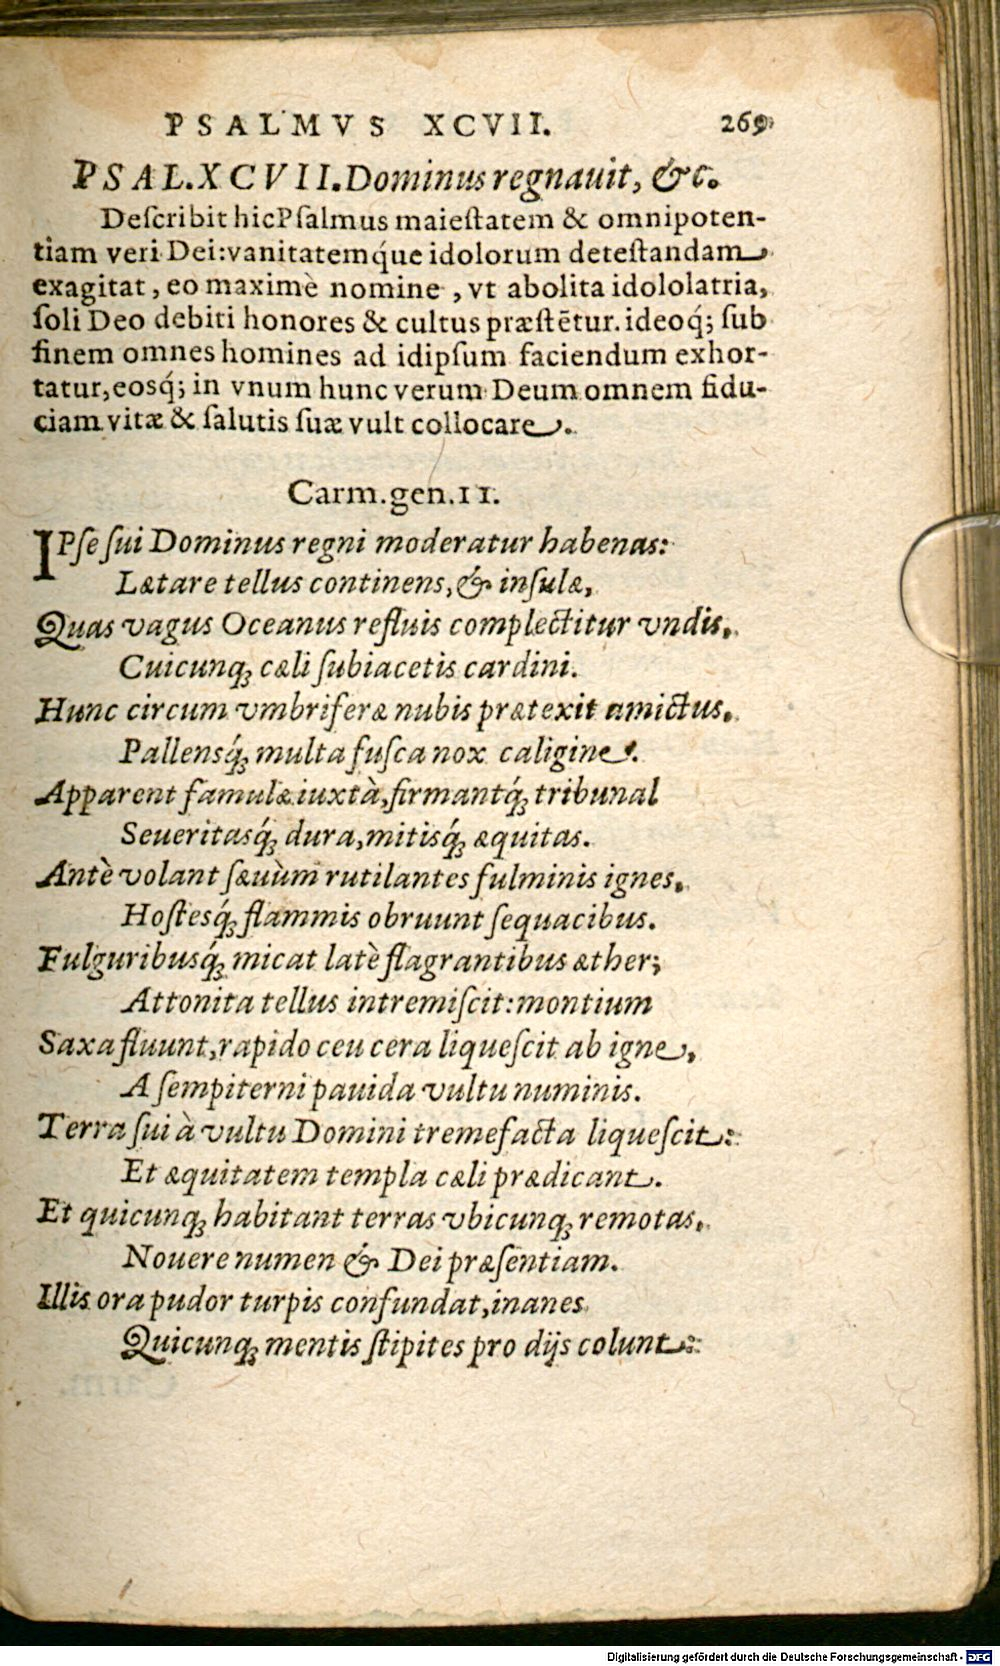 PSALMVS XCVII. 269
PSAL.XCVII.Dominus regnauit, &c.
Deſcribit hic Pſalmus maieſtatem & omnipoten-
tiam veri Dei: vanitatemq́ue idolorum deteſtandam
exagitat, eo maximè nomine, vt abolita idololatria,
ſoli Deo debiti honores & cultus præſtētur. ideoq́; ſub
finem omnes homines ad idipſum faciendum exhor-
tatur, eosq́; in vnum hunc verum Deum omnem fidu-
ciam vitæ & ſalutis ſuæ vult collocare.
Carm.gen.11.
IPſe ſui Dominus regni moderatur habenas:
Lætare tellus continens, & inſulæ,
Quas vagus Oceanus refluis complectitur vndis,
Cuicunq; cæli ſubiacetis cardini.
Hunc circum vmbriferæ nubis prætexit amictus,
Pallensq́; multa fuſca nox caligine.
Apparent famulæ iuxtà, firmantq́; tribunal
Seueritasq́; dura, mitisq́; æquitas.
Antè volant ſæuùm rutilantes fulminis ignes,
Hoſtesq́; flammis obruunt ſequacibus.
Fulguribusq́; micat latè flagrantibus æther;
Attonita tellus intremiſcit: montium
Saxa fluunt, rapido ceu cera liqueſcit ab igne,
A ſempiterni pauida vultu numinis.
Terra ſui à vultu Domini tremefacta liqueſcit:
Et æquitatem templa cæli prædicant.
Et quicunq; habitant terras vbicunq; remotas,
Nouere numen & Dei præſentiam.
Illis ora pudor turpis confundat, inanes
Quicunq; mentis ſtipites pro dijs colunt:
Digitalisierung gefördert durch die Deutsche Forschungsgemeinschaft - DFG